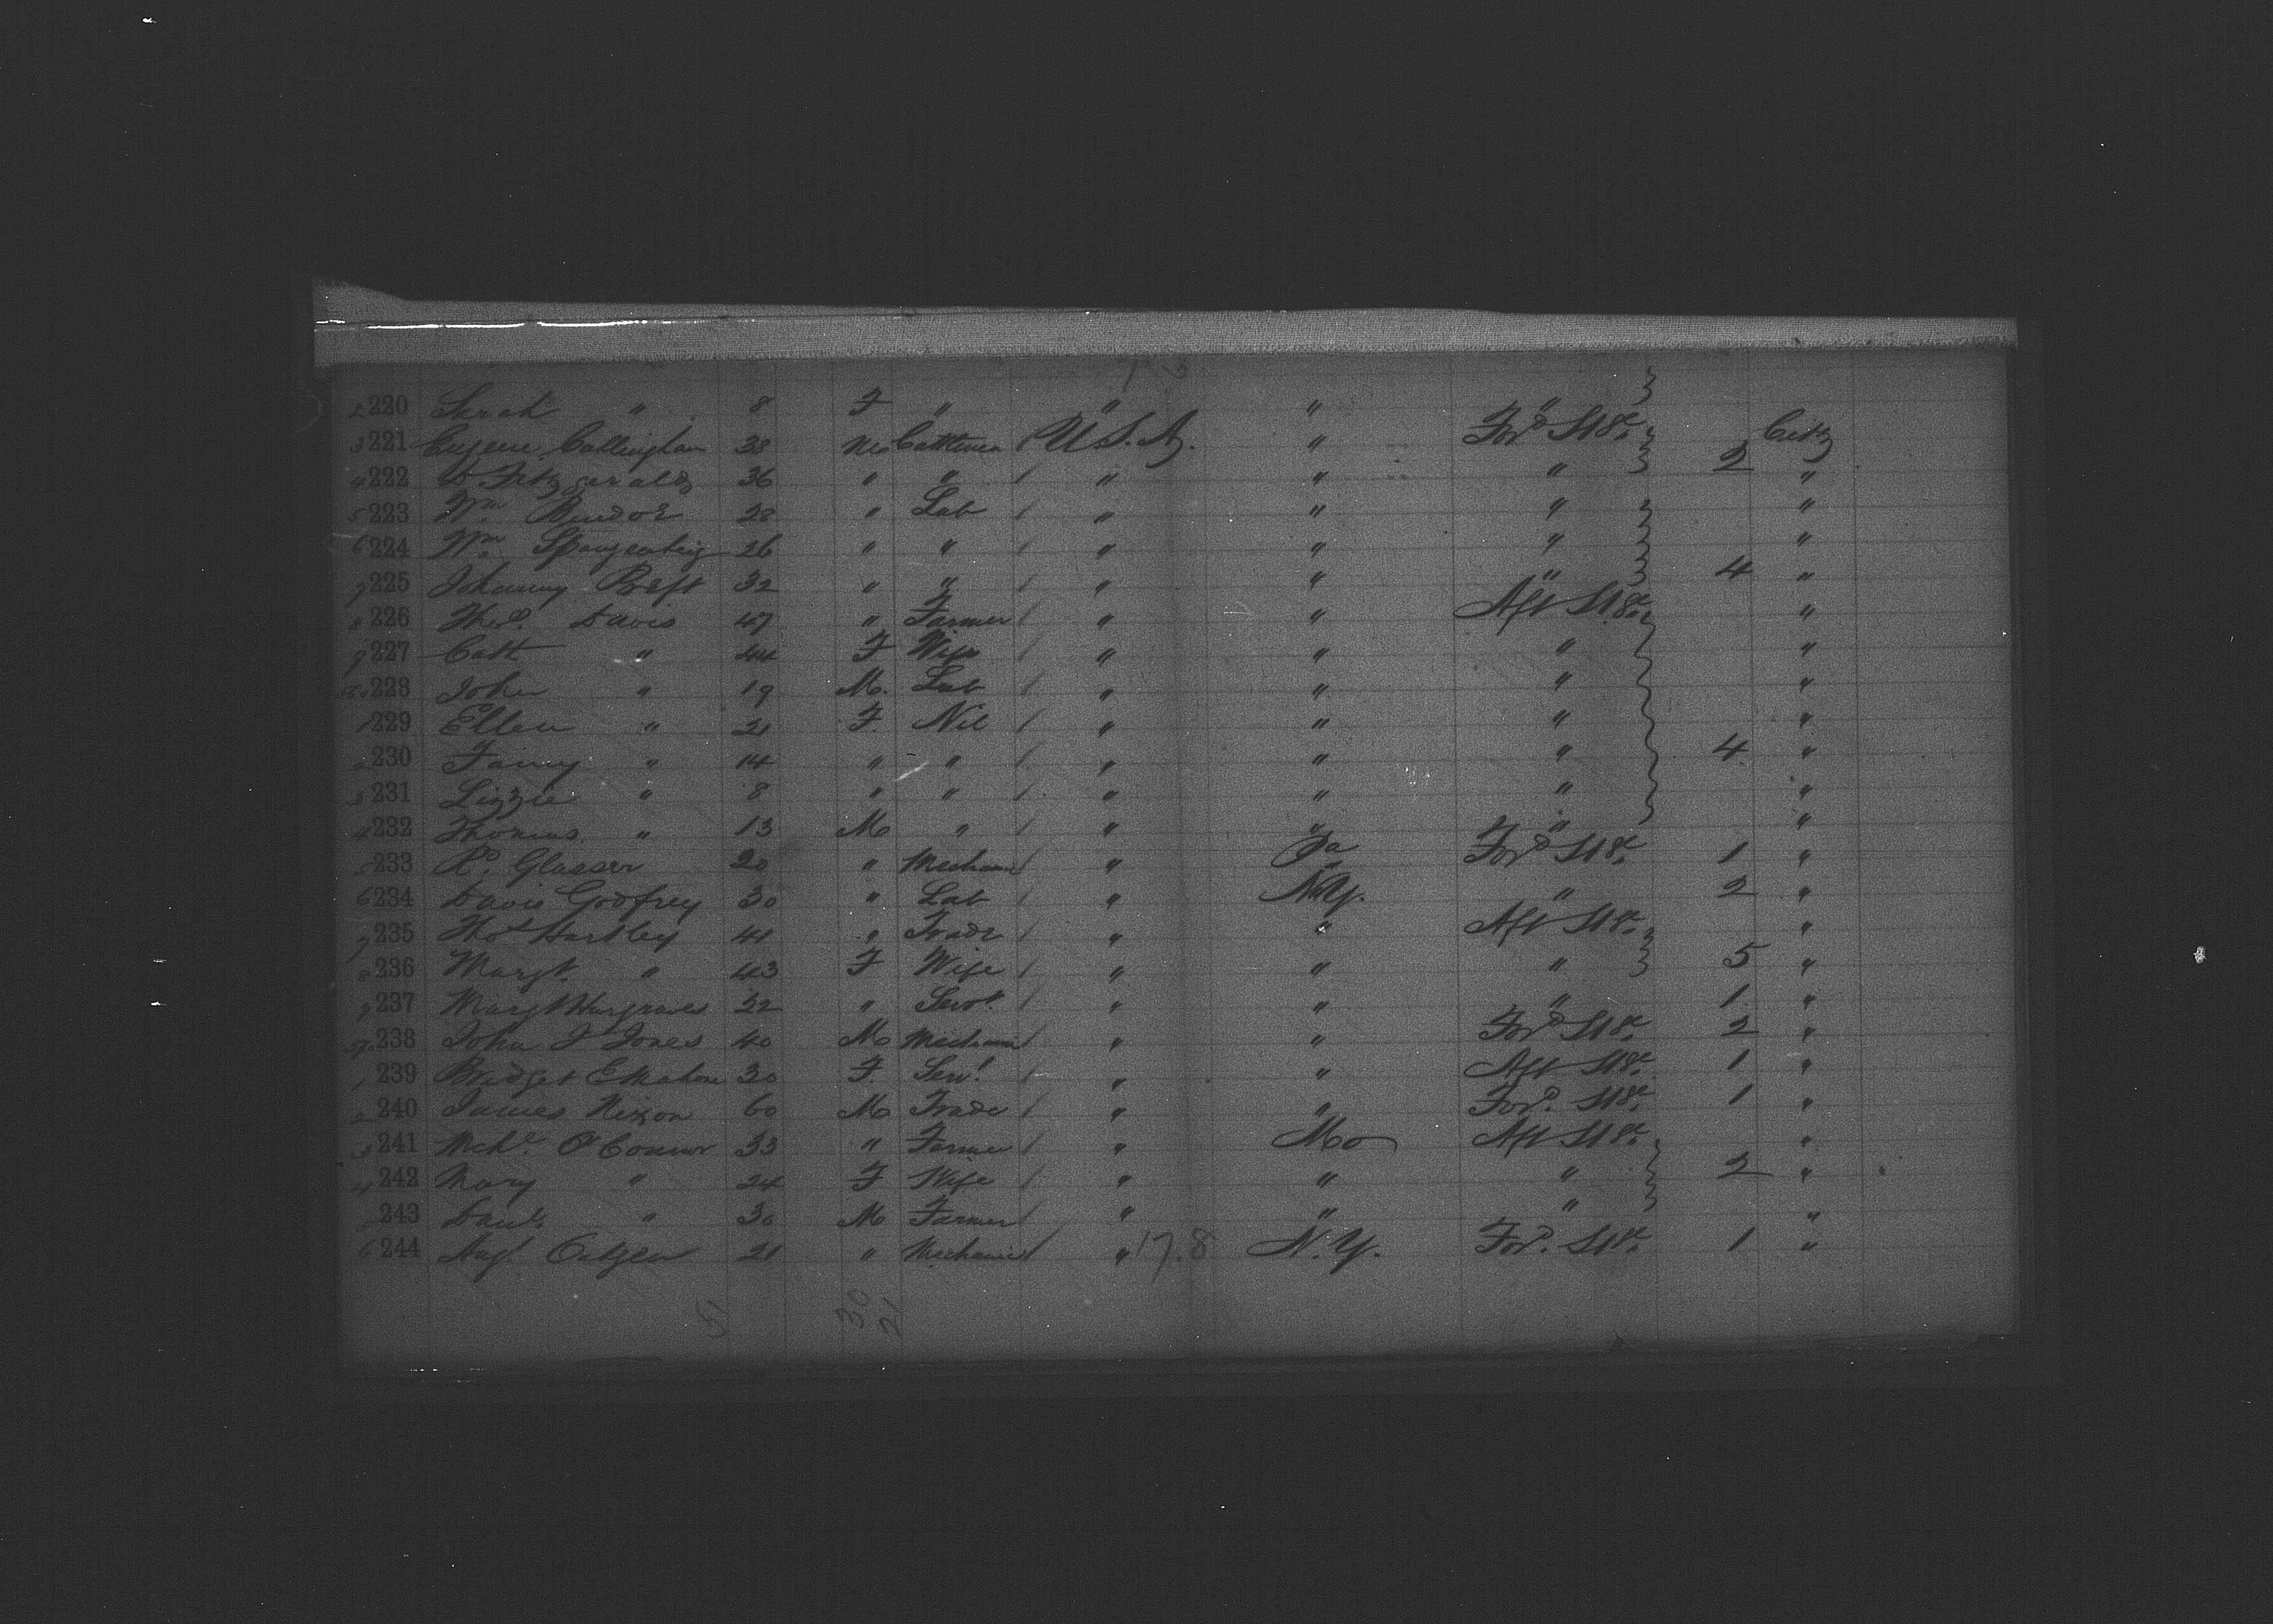 220 Sarah " 8 F " " " "
221 Eugene Callinghan 38 M Cattlemen / U.S.A. " For'd St'g'e Citz
222 D Fitzgerald 36 " " / " " " 2 "
223 Wm 28 " Lab / " " " "
224 Wm Spangenberg 26 " " / " " " "
225 Johanny 32 " " / " " " 4 "
226 Theo. Davis 47 " Farmer / " " Aft St'g'e "
227 Cath " 44 F Wife / " " " "
228 John " 19 M. Lab / " " " "
229 Ellen " 21 F. Nil / " " " "
230 Fanny " 14 " " / " " " 4 "
231 Lizzie " 8 " " / " " " "
232 Thomas " 13 M " / " " " "
233 Rd. Glasser 20 " Mechanic " Pa For'd St'g'e 1 "
234 Davis Godfrey 30 " Lab / " N.Y. " 2 "
235 Thos Hartley 41 " Trade / " " Aft St'g'e "
236 Margt. " 43 F Wife / " " " 5 "
237 Margt Hargraves 22 " Servt. / " " " 1 "
238 John J Jones 40 M Mechanic " " For'd St'g'e 2 "
239 Bridget 30 F. Servt. / " " Aft St'g'e 1 "
240 James Nixon 60 M Trade / " " For'd. St'g'e 1 "
241 Mchl. O'Connor 33 " Farmer / " Mo Aft St'g'e "
242 Mary " 24 F Wife / " " " 2 "
243 Danl. " 30 M Farmer / " " " "
244 Augt. 21 " Mechanic / " 17.8 N.Y. For'd. St'g'e 1 "
51 30 21